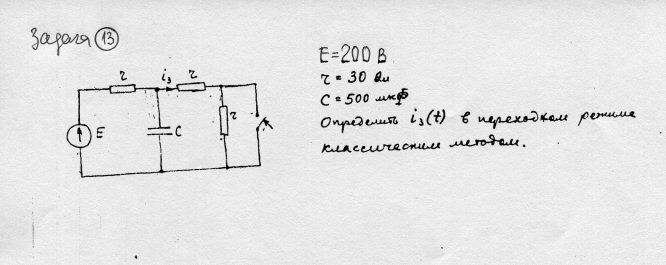 Задача 13
E=200 В
r = 30 Ом
C = 500 мкф
Определить i₃(t) в переходном режиме
классическим методом.
r
i₃
r
r
E
C